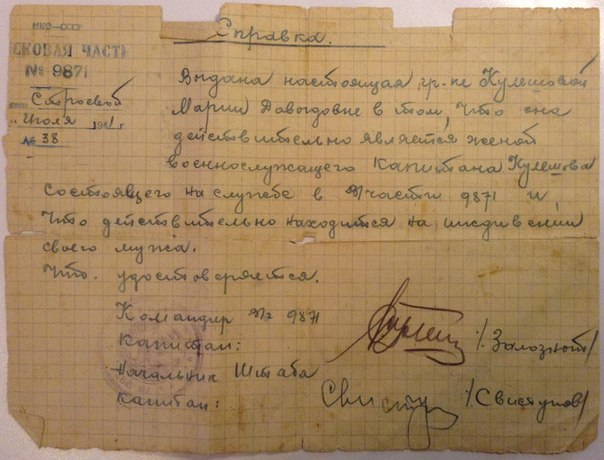 НКО-СССР
СКОВАЯ ЧАСТЬ
№ 9871
Строевой
" Июля 1941 г
№ 38
Справка.
Выдана настоящая, гр-не Кулешовой
Марии Давыдовне в том, что она
действительно является женой
военнослужащего капитана Кулешова
состоящего на службе в части 9871 и,
что действительно находится на иждивении
своего мужа.
Что удостоверяется.
Командир 9871
капитан:
/Залозной/
Начальник Штаба
капитан:
Свисту
/Свистунов/